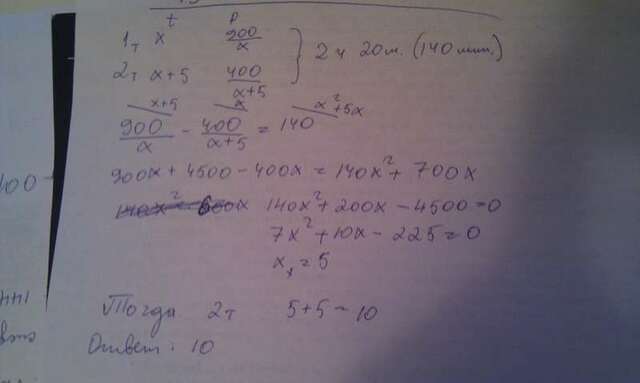 t p
1т x 900/x
2т x+5 400/x+5 } 2 ч 20 м. (140 мин.)
x+5 x x²+5x
900/x - 400/x+5 = 140
900x + 4500 - 400x = 140x² + 700x
140x² 600x 140x² + 200x - 4500 = 0
7x² + 10x - 225 = 0
x₁ = 5
Тогда 2т 5+5 = 10
Ответ: 10